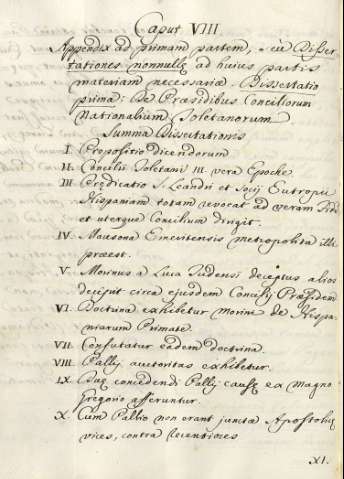 Caput VIII.
Appendix ad primam partem, sive Disser
tationes nonnullę ad huius partis
materiam necessariæ. Dissertatio
prima: De Præsidibus Conciliorum
Nationalium Toletanorum
Summa Dissertationis
I. Propositio dicendorum
II. Concilii Toletani III. vera Epoche.
III. Prędicatio S. Leandri et Socij Eutropii
Hispaniam totam vocat ad veram fid
et uterque Concilium dirigit.
IV. Mausona Emeritensis metropolita illi
præest.
V. Morinus a Luca Tudensi deceptus alios
decipit circa ejusdem Concilij Pręsidem
VI. Doctrina exhibetur Morini de Hispa
niarum Primate.
VII. Confutatur eadem doctrina.
VIII. Pallij auctoritas exhibetur.
IX. Duę concedendi Pallij causę ex magno
Gregorio afferuntur.
X. Cum Pallio non erant juncta Apostolicę
vices, contra recentiores
XI.